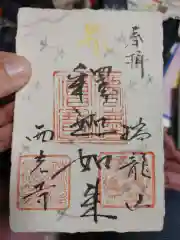 奉拝
龍山
釋迦如来
西光寺